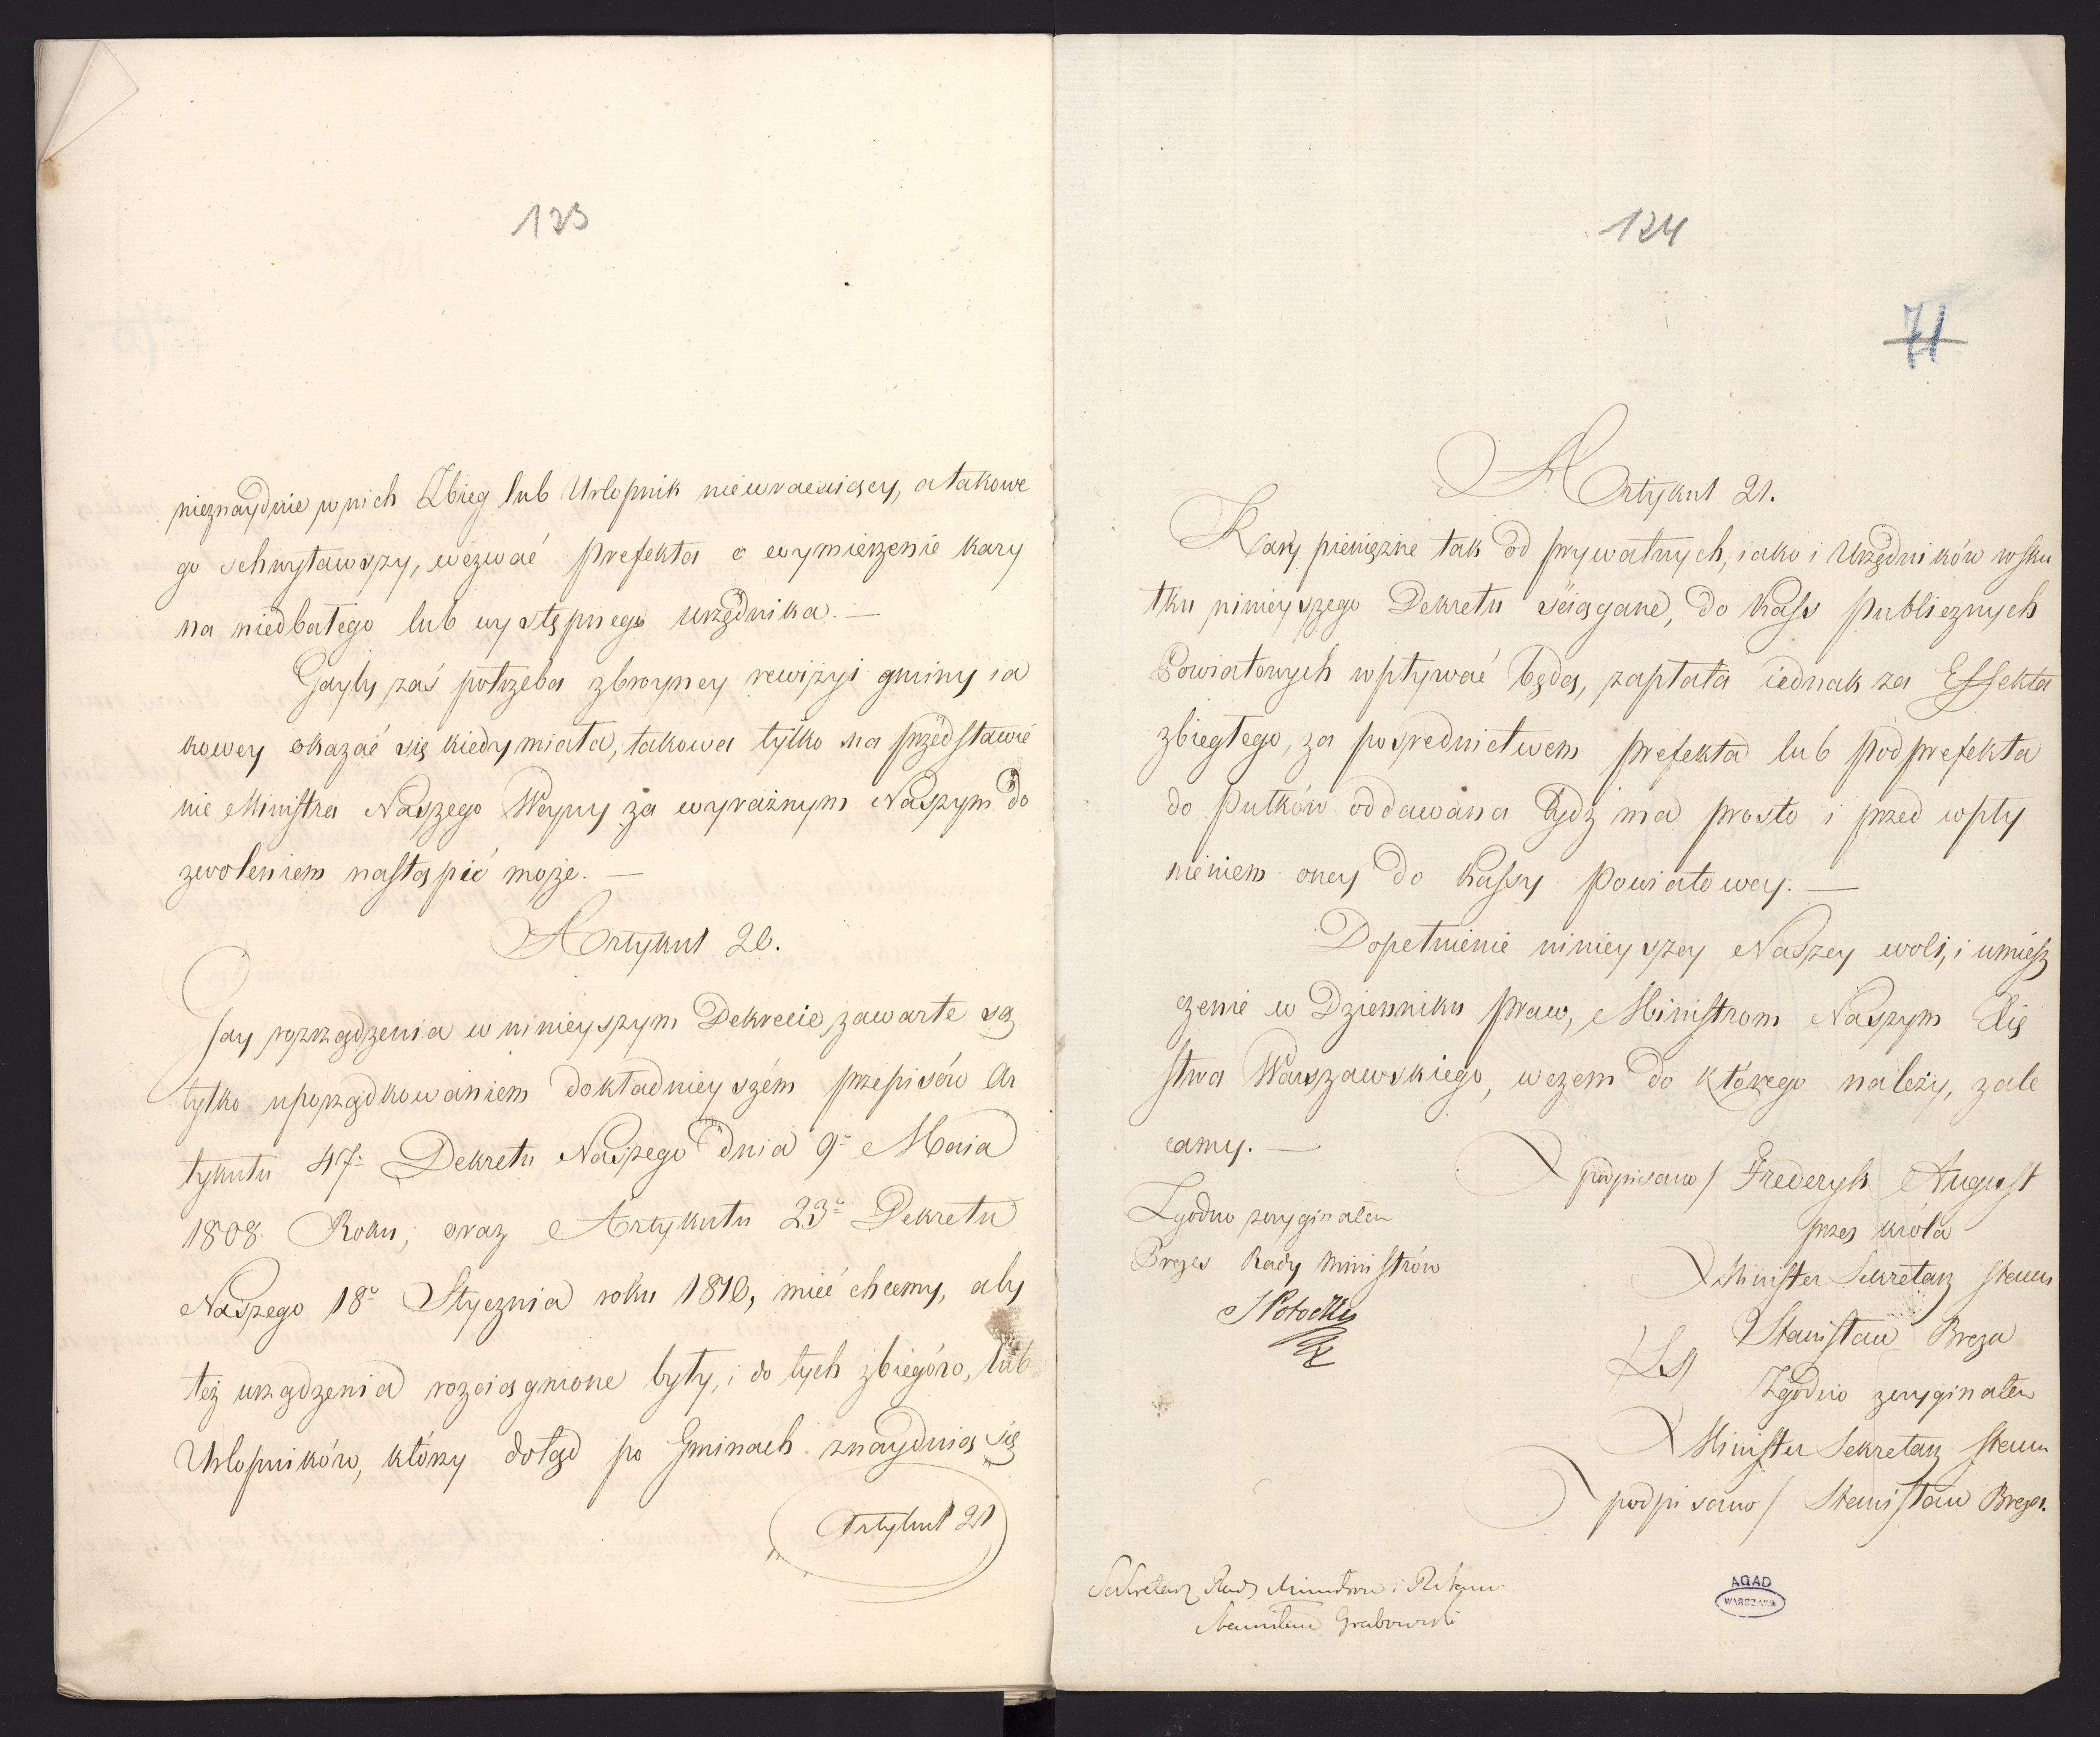 123
nieznayduie w nich Zbieg lub Urlopnik niewracaiący, a takowe
go schwytawszy, wezwać Prefekta o wymierzenie kary
na niedbałego lub występnego urzędnika. —
Gdyby zaś potrzeba zbroyney rewizyi gminy ia
kowey okazać się kiedy miała, takowa tylko na przedstawie
nie Ministra Naszego Woyny za wyraźnym Naszym do
zwoleniem nastąpić może. —
Artykuł 20.
Gdy rozrządzenia w ninieyszym Dekrecie zawarte są
tylko uporządkowaniem dokładnieyszém przepisów Ar
tykułu 47º Dekretu Naszego dnia 9º Maia
1808 Roku, oraz Artykułu 23º Dekretu
Naszego 18º Stycznia roku 1810, mieć chcemy, aby
też urządzenia rozciągnione były, i do tych zbiegów, lub
Urlopników, którzy dotąd po Gminach znayduią się
Artykuł 21
124
71
Artykuł 21.
Kary pieniężne tak od prywatnych, iako i Urzędników wsku
tku ninieyszego Dekretu ściągane, do Kass publicznych
Powiatowych wpływać będą, zapłata iednak za Effekta
zbiegłego, za pośrednictwem Prefekta lub Podprefekta
do Pułków oddawana bydź ma prosto i przed wpły
nieniem oney do Kassy Powiatowey. —
Dopełnienie ninieyszey Naszey woli, i umiesz
czenie w Dzienniku praw, Ministrom Naszym Xię
stwa Warszawskiego, w czem do którego należy, zale
camy. —
podpisano / Frederyk August
przez króla
Minister Sekretarz stanu
Stanisław Breza
LS
Zgodno z oryginałem
Minister Sekretarz stanu
podpisano / Stanisław Breza.
Zgodno z oryginałem
Prezes Rady Ministrów
S Potocki
Sekretarz Rady Ministrów i R. Stanu
Stanisław Grabowski
AGAD
WARSZAWA